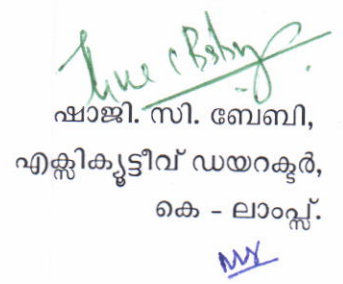 ഷാജി. സി. ബേബി,
എക്സിക്യൂട്ടീവ് ഡയറക്ടർ,
കെ - ലാംപ്സ്.